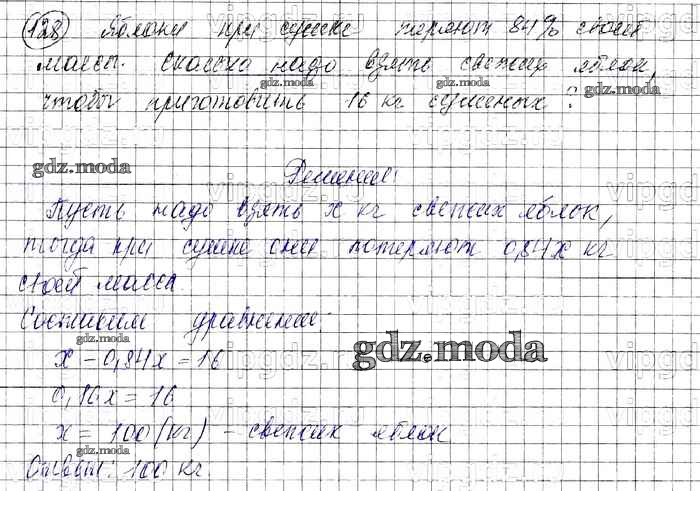 128 Яблоки при сушке теряют 84% своей
массы. Сколько надо взять свежих яблок,
gdz.moda
gdz.moda
чтобы приготовить 16 кг сушеных?
gdz.moda
Решение:
Пусть надо взять x кг свежих яблок,
тогда при сушке они потеряют 0,84x кг
своей массы.
Составим уравнение:
gdz.moda
x - 0,84x = 16
gdz.moda
0,16x = 16
x = 100 (кг) - свежих яблок
gdz.moda
gdz.moda
Ответ: 100 кг.